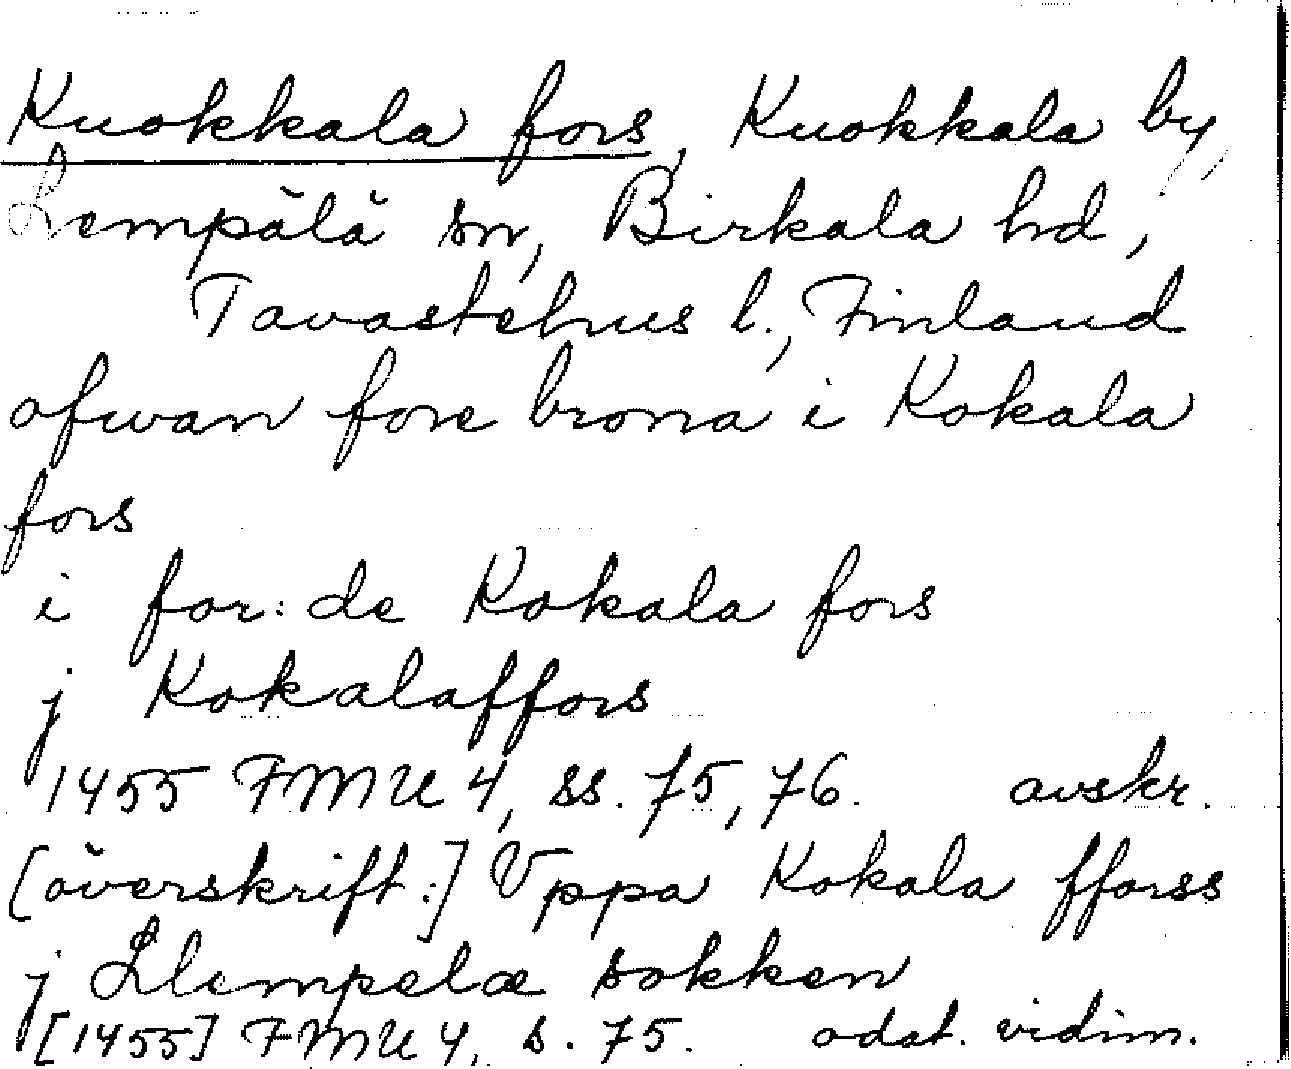 Kuokkala fors, Kuokkala by,
Lempälä sn, Birkala hd,
Tavastehus l., Finland
ofwan fore brona i Kokala
fors
i for:de Kokala fors
j Kokalaffors
1455 FMU 4, ss. 75, 76. avskr.
[överskrift:] Vppa Kokala fforss
j Llempelæ sokken
[1455] FMU 4, s. 75. odat. vidim.